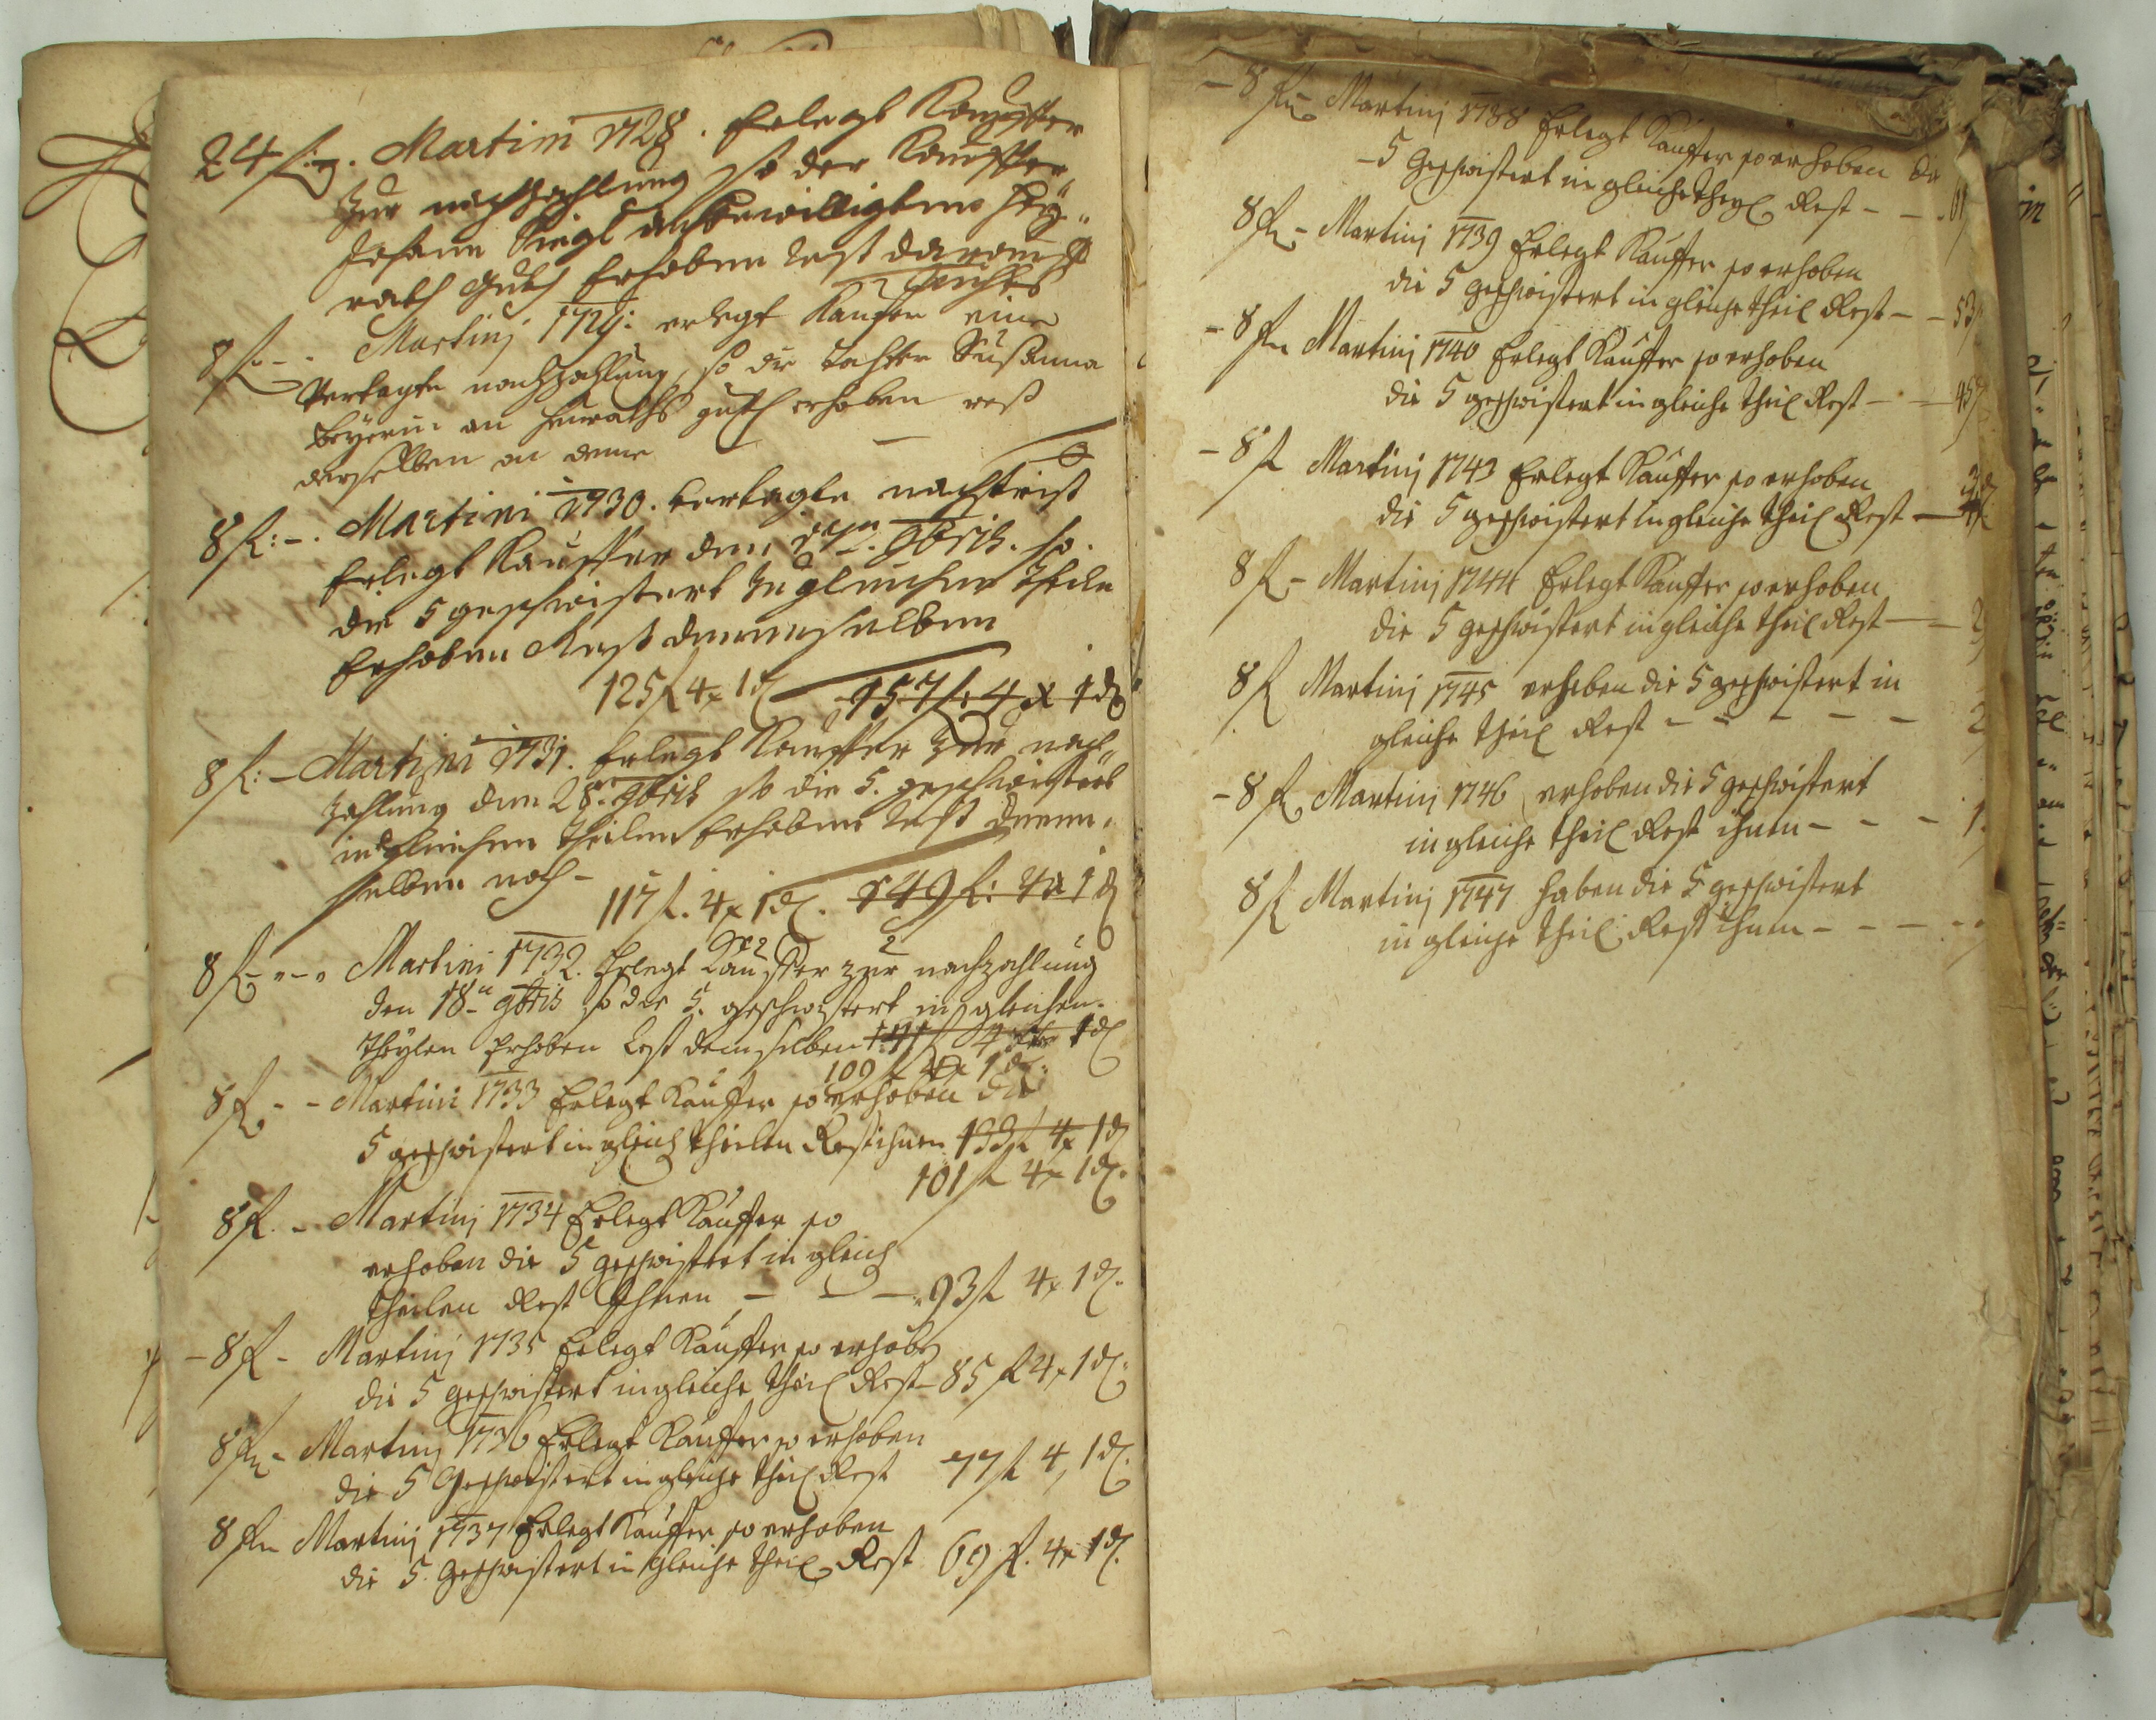 24 fl:–. Martini 1728. Erlegt Kauffer
zur nachzahlung so der Kauffer
Johann bewilligten Hey¨
rath Guth Erhoben Rest darauf
nichts
8 fl – – Martinj 1729: erlegt Kaufer eine
Vertagte nachzahlung, so die Tochter Susanna
Beyerin an Heuraths guth erhoben rest
derselben an deme – 0
8 fl:–. Martini 1730. Vertagte nachfrist
Erlegt Kauffer den 9bris. so
die 5 geschwistert zu gleichen Theile
Erhoben Rest dennenselben
125 fl 4 x 1 d 157 fl: 4 x 1 d
8 fl:– Martini 1731. Erlegt Kauffer zur nach¨
zahlung den 28. 9bris so die 5. geschwistert
in gleichen Theilen Erhoben Rest denen¨
selben noch –
117 fl. 4 x 1 d. 149 fl: 4 x 1 d
8 fl – „ – „ Martini 1732. Erlegt Kauffer zur nachzahlung
den 18ten 9bris so die 5. geschwistert in gleichen
theylen Erhoben Rest denselben 141 fl 4 x 1 d
109 fl 4 x 1 d.
8 fl – – Martini 1733 Erlegt Kauffer so erhoben die
5 geschwistert in gleich theilen Rest ihnen 133 fl 4 x 1 d
101 fl 4 x 1 d.
8 fl. – Martinj 1734 Erlegt Kauffer so
erhoben die 5 geschwistert in gleich
theilen Rest Ihnen – – – 93 fl 4 x 1 d.
– 8 fl – Martinj 1735 Erlegt Kauffer so erhobe
die 5 geschwistert in gleiche theil Rest – 85 fl 4 x 1 d.
8 fl – Martinj 1736 Erlegt Kauffer so erhoben
die 5 Geschwistert in gleiche theil Rest 77 fl 4, 1 d.
8 fl – Martinj 1737 Erlegt Kauffer so erhoben
die 5. Geschwistert in gleiche theil Rest 69 fl. 4 x 1 d.
– 8 fl – Martinj 1738 Erlegt Kauffer so erhoben die
– 5 Geschwistert in gleiche theyl Rest – – 61
8 fl – Martinj 1739 Erlegt Kauffer so erhoben
die 5 geschwistert in gleiche theil Rest – – 53
– 8 fl – Martinj 1740 Erlegt Kauffer so erhoben
die 5 geschwistert in gleiche theil Rest – – 45
– 8 fl Martinj 1743 Erlegt Kauffer so erhoben
die 5 geschwistert in gleiche theil Rest –
8 fl – Martinj 1744 Erlegt Kauffer so erhoben
die 5 geschwistert in gleiche theil Rest – – 2
8 fl Martinj 1745 erheben die 5 geschwistert in
gleiche theil Rest – – – – – 2
– 8 fl Martinj 1746 erhoben die 5 geschwistert
in gleiche theil Rest ihnen – – – 1
8 fl Martinj 1747 haben die 5 geschwistert
in gleiche theil Rest ihnen – – – –